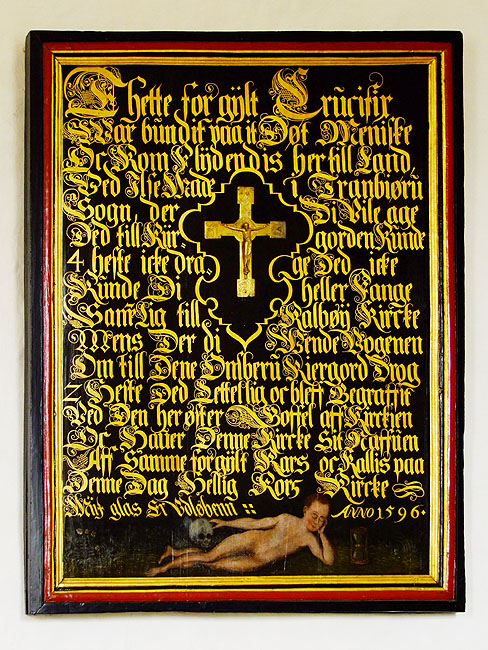 Thette for gÿlt Crucifix
War bundit paa it Døt Meniske
Oc Kom Flÿdendis her till Land
Ved Ilse Made i Tranbiøru
Sogn, der Di Vile age
Ded till Kir- gorden Kunde
4 heste icke dra, ge Ded icke
Kunde Di heller Fange
Samlig till Kalbøÿ Kircke
Mens Der di Wende Vogenen
Om till Dene Omberu Kiergord Drog
2 Heste Ded Lettelig oc bleff Begraffit
Ved Den her øster Goffel aff Kirckjen
Oc Hauer Denne Kircke Sit Naffuen
Aff Samme for gÿlt Kars oc Kallis paa
Denne Dag Hellig Kors Kircke
glas
ANNO 1596